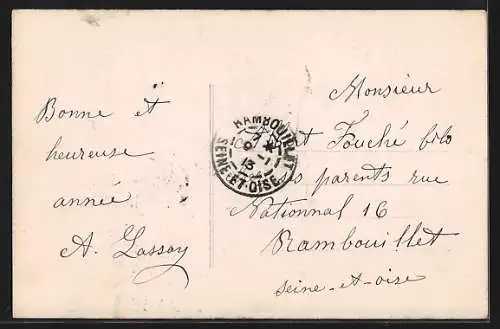 Bonne et
heureuse
année
A. Lassoy
RAMBOUILLET
SEINE-ET-OISE
Monsieur
Fouché
parents rue
Nationnal 16
Rambouillet
Seine-et-oise